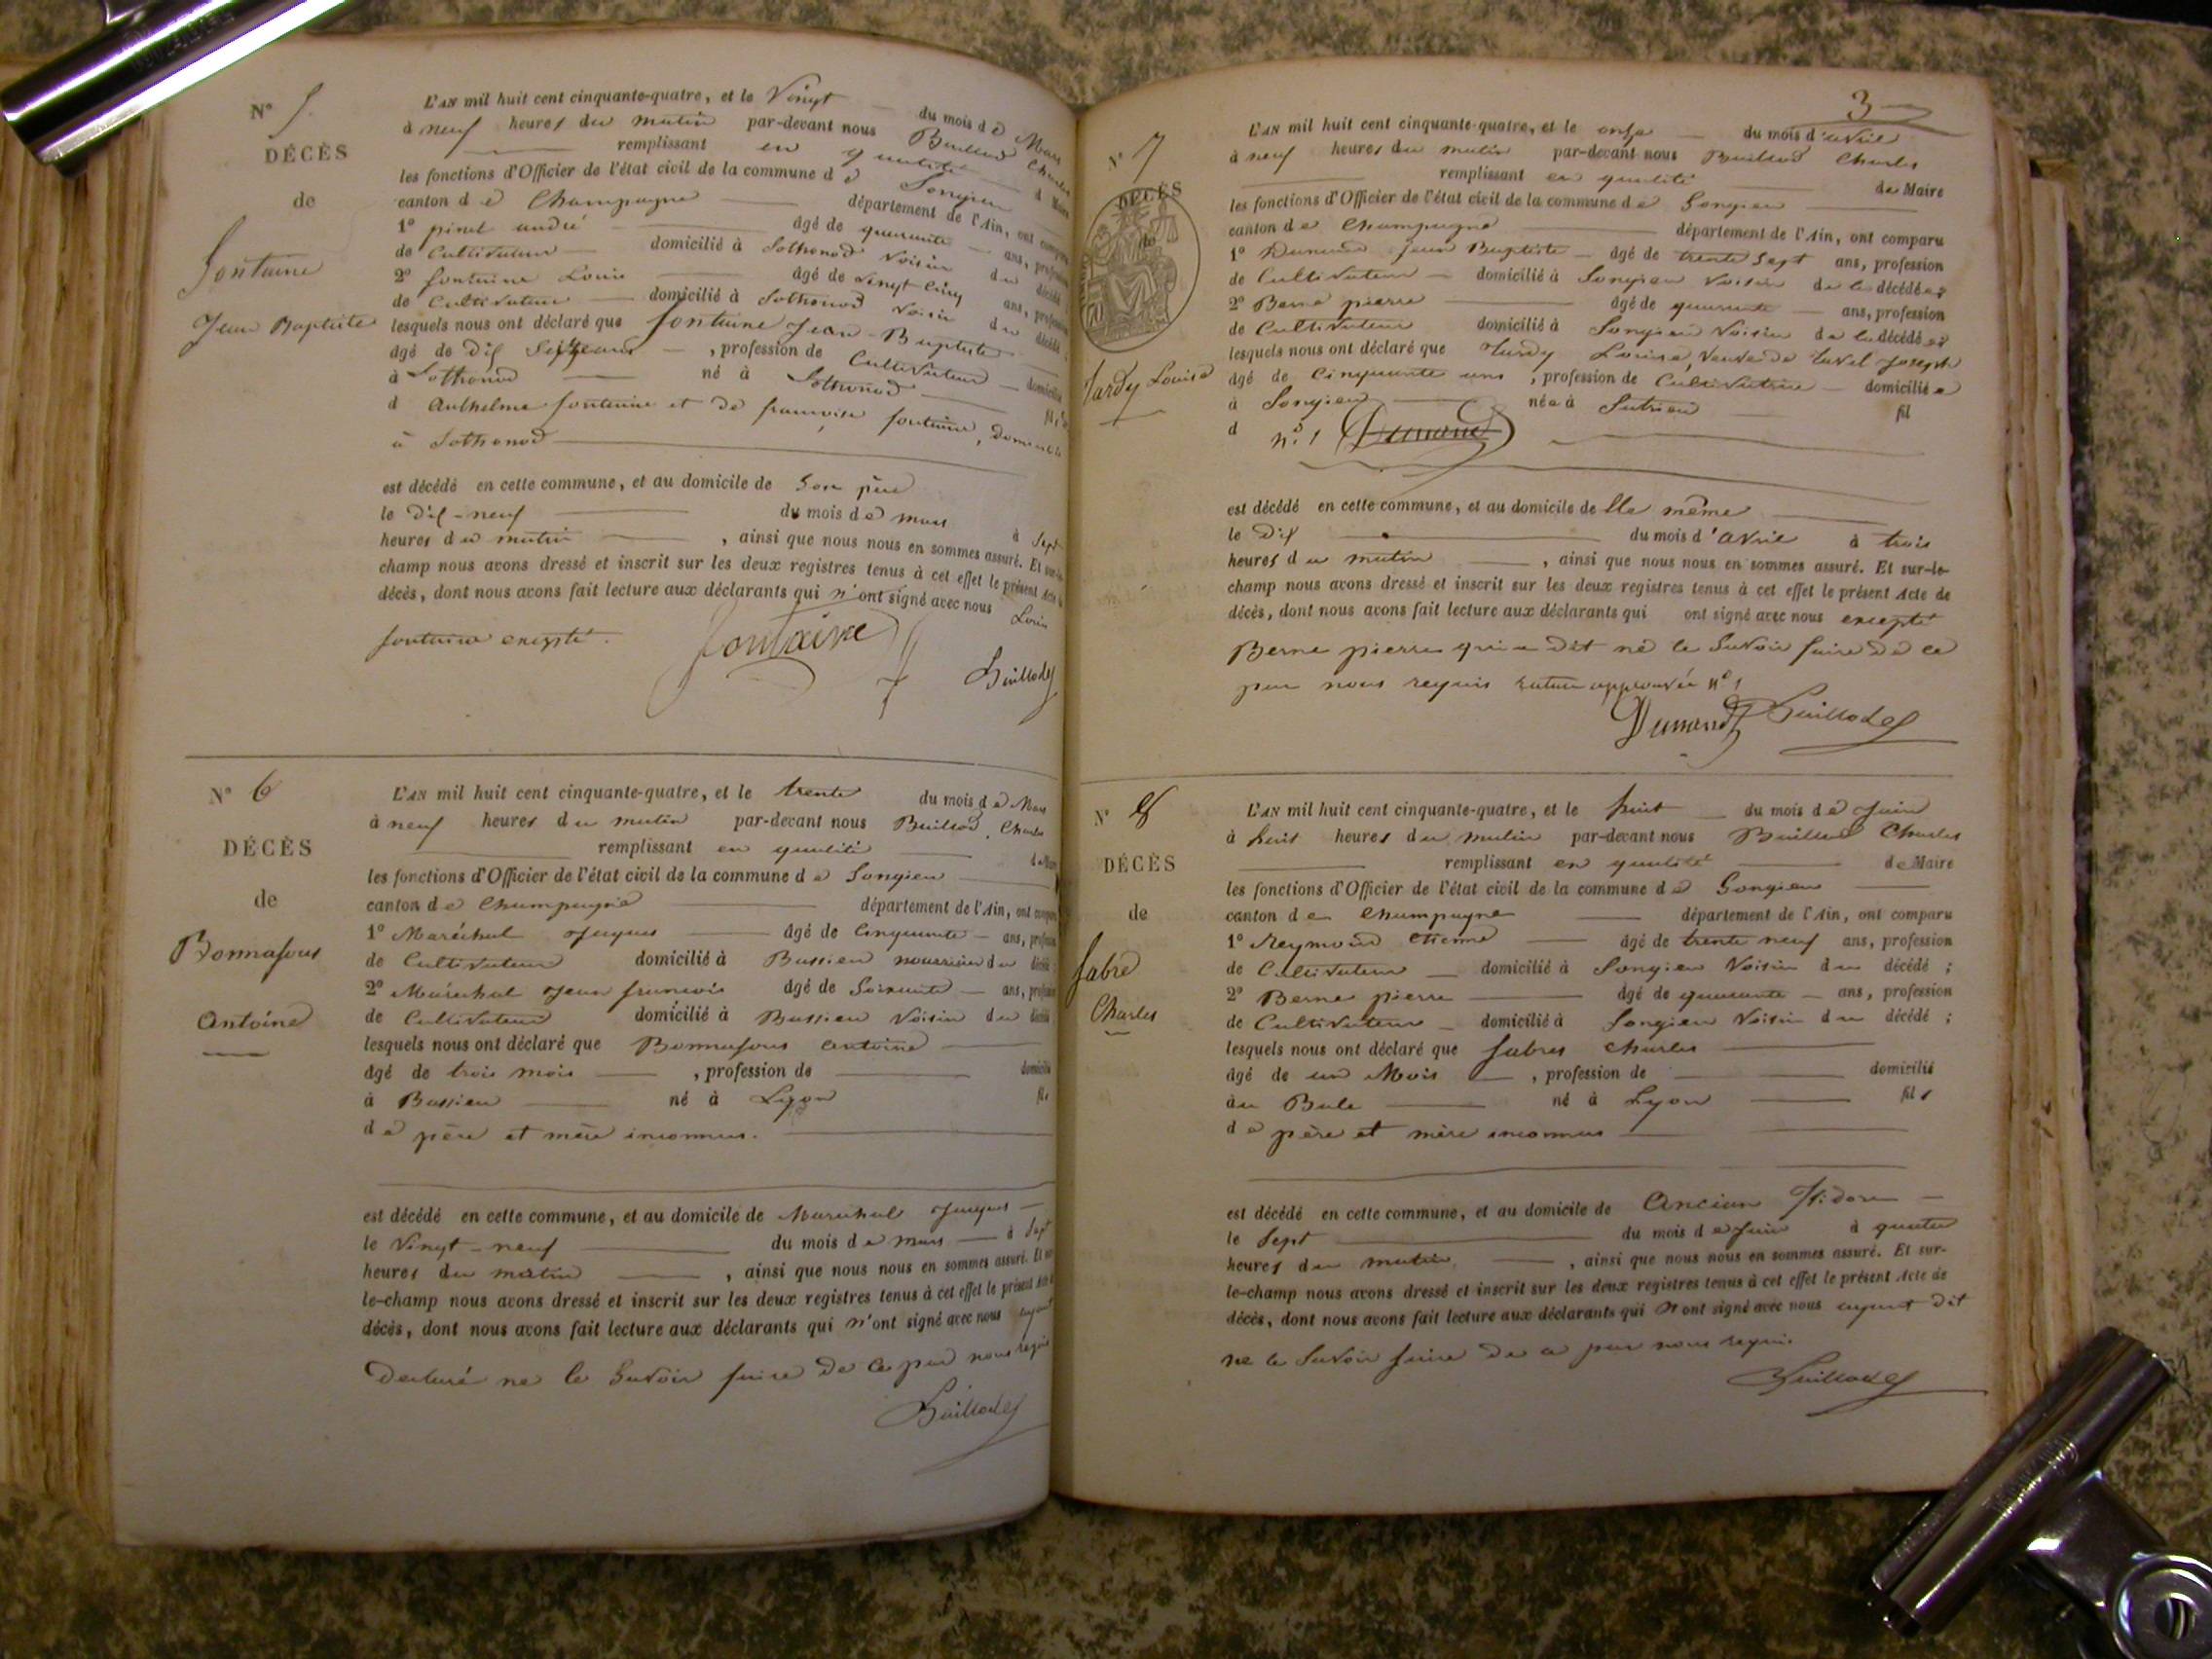 N° 5
DÉCÈS
de
fontaine
Jean Baptiste
L'AN mil huit cent cinquante-quatre, et le Vingt du mois de Mars
à neuf heures du matin par-devant nous Buillod Charles
remplissant en qualité de Maire
les fonctions d'Officier de l'état civil de la commune de Songieu
canton de Champagne département de l'Ain, ont comparu
1° pinet andré âgé de quarante ans, profession
de Cultivateur domicilié à Sothonod Voisin du décédé
2° fontaine Louis âgé de vingt cinq ans, profession
de Cultivateur domicilié à Sothonod Voisin du décédé ;
lesquels nous ont déclaré que fontaine Jean-Baptiste
âgé de dix Sept ans , profession de Cultivateur domicilié
à Sothonod né à Sothonod fils
d Anthelme fontaine et de françoise fontaine, domicilié
à Sothonod
est décédé en cette commune, et au domicile de Son père
le dix-neuf du mois de mars à Sept
heures du matin , ainsi que nous nous en sommes assuré. Et sur-le-
champ nous avons dressé et inscrit sur les deux registres tenus à cet effet le présent Acte de
décès, dont nous avons fait lecture aux déclarants qui n'ont signé avec nous Louis
fontaine excepté.
fontaine Buillod
N° 6
DÉCÈS
de
Bonnafous
Antoine
L'AN mil huit cent cinquante-quatre, et le trente du mois de Mars
à neuf heures du matin par-devant nous Buillod, Charles
remplissant en qualité de Maire
les fonctions d'Officier de l'état civil de la commune de Songieu
canton de Champagne département de l'Ain, ont comparu
1° Maréchal Jaques âgé de Cinquante ans, profession
de Cultivateur domicilié à Bassieu nourricier du décédé
2° Maréchal Jean francois âgé de Soixante ans, profession
de Cultivateur domicilié à Bassieu Voisin du décédé
lesquels nous ont déclaré que Bonnafous antoine
âgé de trois mois , profession de domicilié
à Bassieu né à Lyon fils
de père et mère inconnus.
est décédé en cette commune, et au domicile de Maréchal Jaques
le Vingt-neuf du mois de mars à Sept
heures du matin , ainsi que nous nous en sommes assuré. Et sur-
le-champ nous avons dressé et inscrit sur les deux registres tenus à cet effet le présent Acte de
décès, dont nous avons fait lecture aux déclarants qui n'ont signé avec nous ayant
déclaré ne le Savoir faire de ce par nous requis
Buillod
3
N° 7
DÉCÈS
de
Tardy Louise
L'AN mil huit cent cinquante-quatre, et le onze du mois d'avril
à neuf heures du matin par-devant nous Buillod Charles
remplissant en qualité de Maire
les fonctions d'Officier de l'état civil de la commune de Songieu
canton de Champagne département de l'Ain, ont comparu
1° Dumand Jean Baptiste âgé de trente Sept ans, profession
de Cultivateur domicilié à Songieu Voisin de la décédée ;
2° Berne pierre âgé de quarante ans, profession
de Cultivateur domicilié à Songieu Voisin de la décédée ;
lesquels nous ont déclaré que Tardy Louise, Veuve de Joseph
âgé de Cinquante ans , profession de Cultivatrice domiciliée
à Songieu née à Sutrieu fil
d n° 1 Dumand
est décédé en cette commune, et au domicile de lle même
le dix du mois d'avril à trois
heures du matin , ainsi que nous nous en sommes assuré. Et sur-le-
champ nous avons dressé et inscrit sur les deux registres tenus à cet effet le présent Acte de
décès, dont nous avons fait lecture aux déclarants qui ont signé avec nous excepté
Berne pierre qui a dit ne le Savoir faire de ce
par nous requis rature approuvée N° 1
Dumand Buillod
N° 8
DÉCÈS
de
fabre
Charles
L'AN mil huit cent cinquante-quatre, et le huit du mois de Juin
à huit heures du matin par-devant nous Buillod Charles
remplissant en qualité de Maire
les fonctions d'Officier de l'état civil de la commune de Songieu
canton de Champagne département de l'Ain, ont comparu
1° Reymond Etienne âgé de trente neuf ans, profession
de Cultivateur domicilié à Songieu Voisin du décédé ;
2° Berne pierre âgé de quarante ans, profession
de Cultivateur domicilié à Songieu Voisin du décédé ;
lesquels nous ont déclaré que fabre Charles
âgé de un Mois , profession de domicilié
au Bale né à Lyon fils
de père et mère inconnus
est décédé en cette commune, et au domicile de Ancian Isidore
le Sept du mois de Juin à quatre
heures du matin , ainsi que nous nous en sommes assuré. Et sur-
le-champ nous avons dressé et inscrit sur les deux registres tenus à cet effet le présent Acte de
décès, dont nous avons fait lecture aux déclarants qui n'ont signé avec nous ayant dit
ne le Savoir faire de ce par nous requis.
Buillod